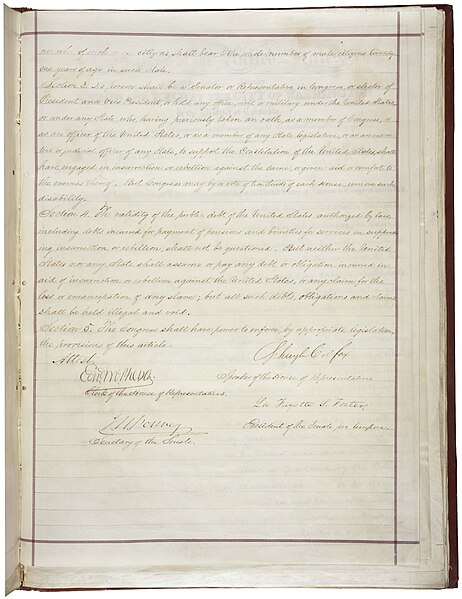 number of such male citizens shall bear to the whole number of male citizens twenty-
one years of age in such State.
Section 3. No person shall be a Senator or Representative in Congress, or elector of
President and Vice President, or hold any office, civil or military, under the United States,
or under any State, who, having previously taken an oath, as a member of Congress, or
as an officer of the United States, or as a member of any State legislature, or as an execu-
tive or judicial officer of any State, to support the Constitution of the United States, shall
have engaged in insurrection or rebellion against the same, or given aid or comfort to
the enemies thereof. But Congress may by a vote of two thirds of each House, remove such
disability.
Section 4. The validity of the public debt of the United States authorized by law,
including debts incurred for payment of pensions and bounties for services in suppress-
ing insurrection or rebellion, shall not be questioned. But neither the United
States nor any State shall assume or pay any debt or obligation incurred in
aid of insurrection or rebellion against the United States, or any claim for the
loss or emancipation of any slave; but all such debts, obligations and claims
shall be held illegal and void.
Section 5. The Congress shall have power to enforce, by appropriate legislation,
the provisions of this article.
Attest.
Schuyler Colfax
Edwd McPherson
Speaker of the House of Representatives.
Clerk of the House of Representatives.
La Fayette S. Foster
J. W. Forney
President of the Senate pro tempore.
Secretary of the Senate.